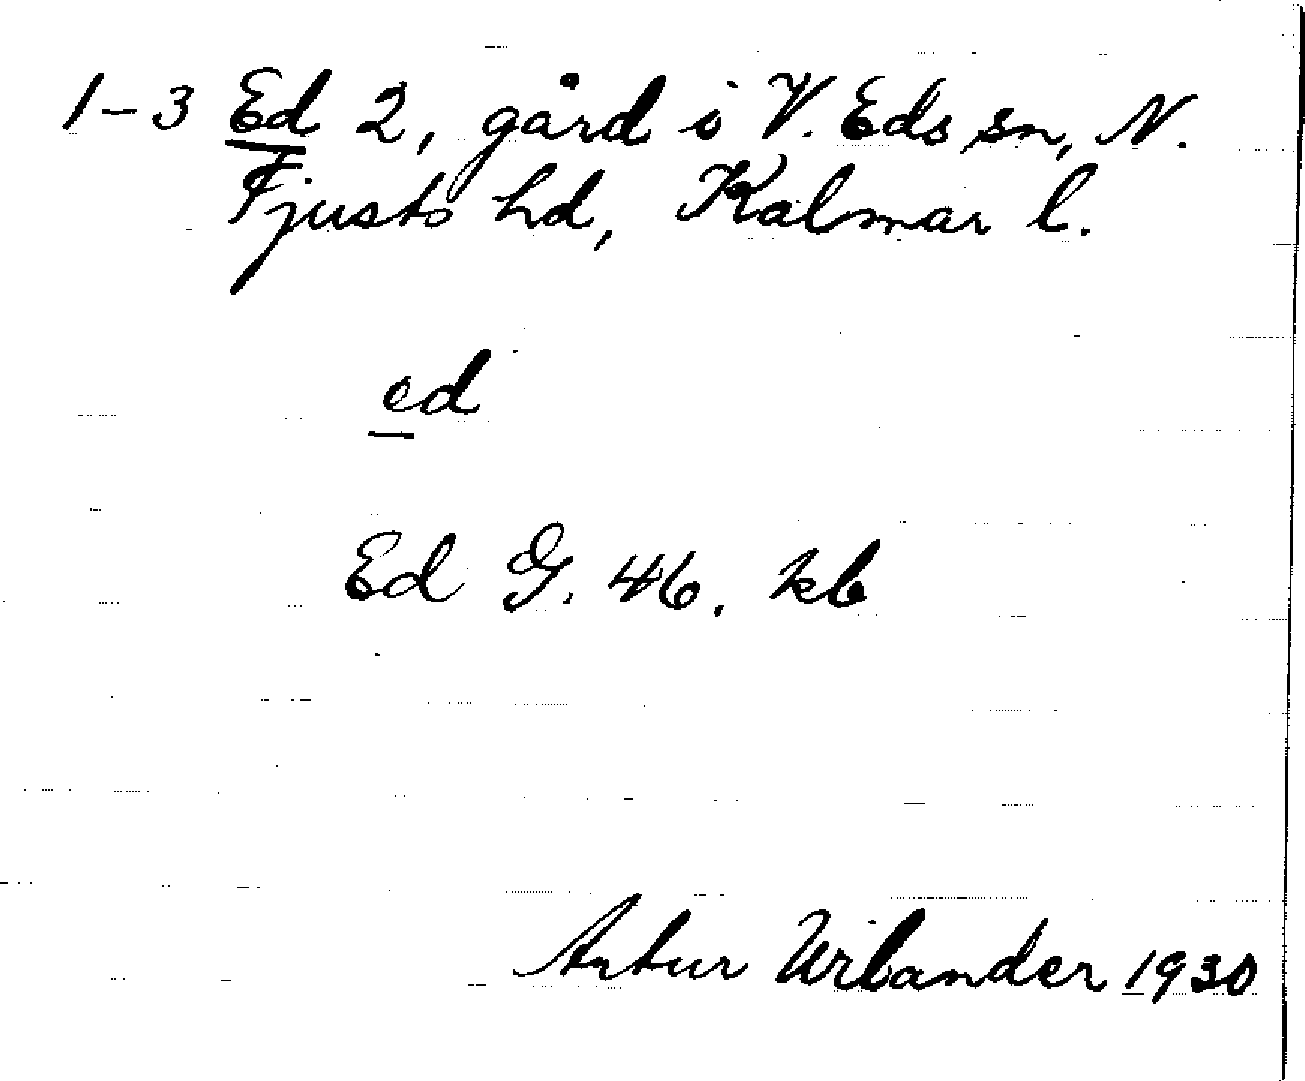 1-3 Ed 2, gård i V. Eds sn, N.
Tjusts hd, Kalmar l.
ed
Ed G. 46. kb
Artur Wilander 1930